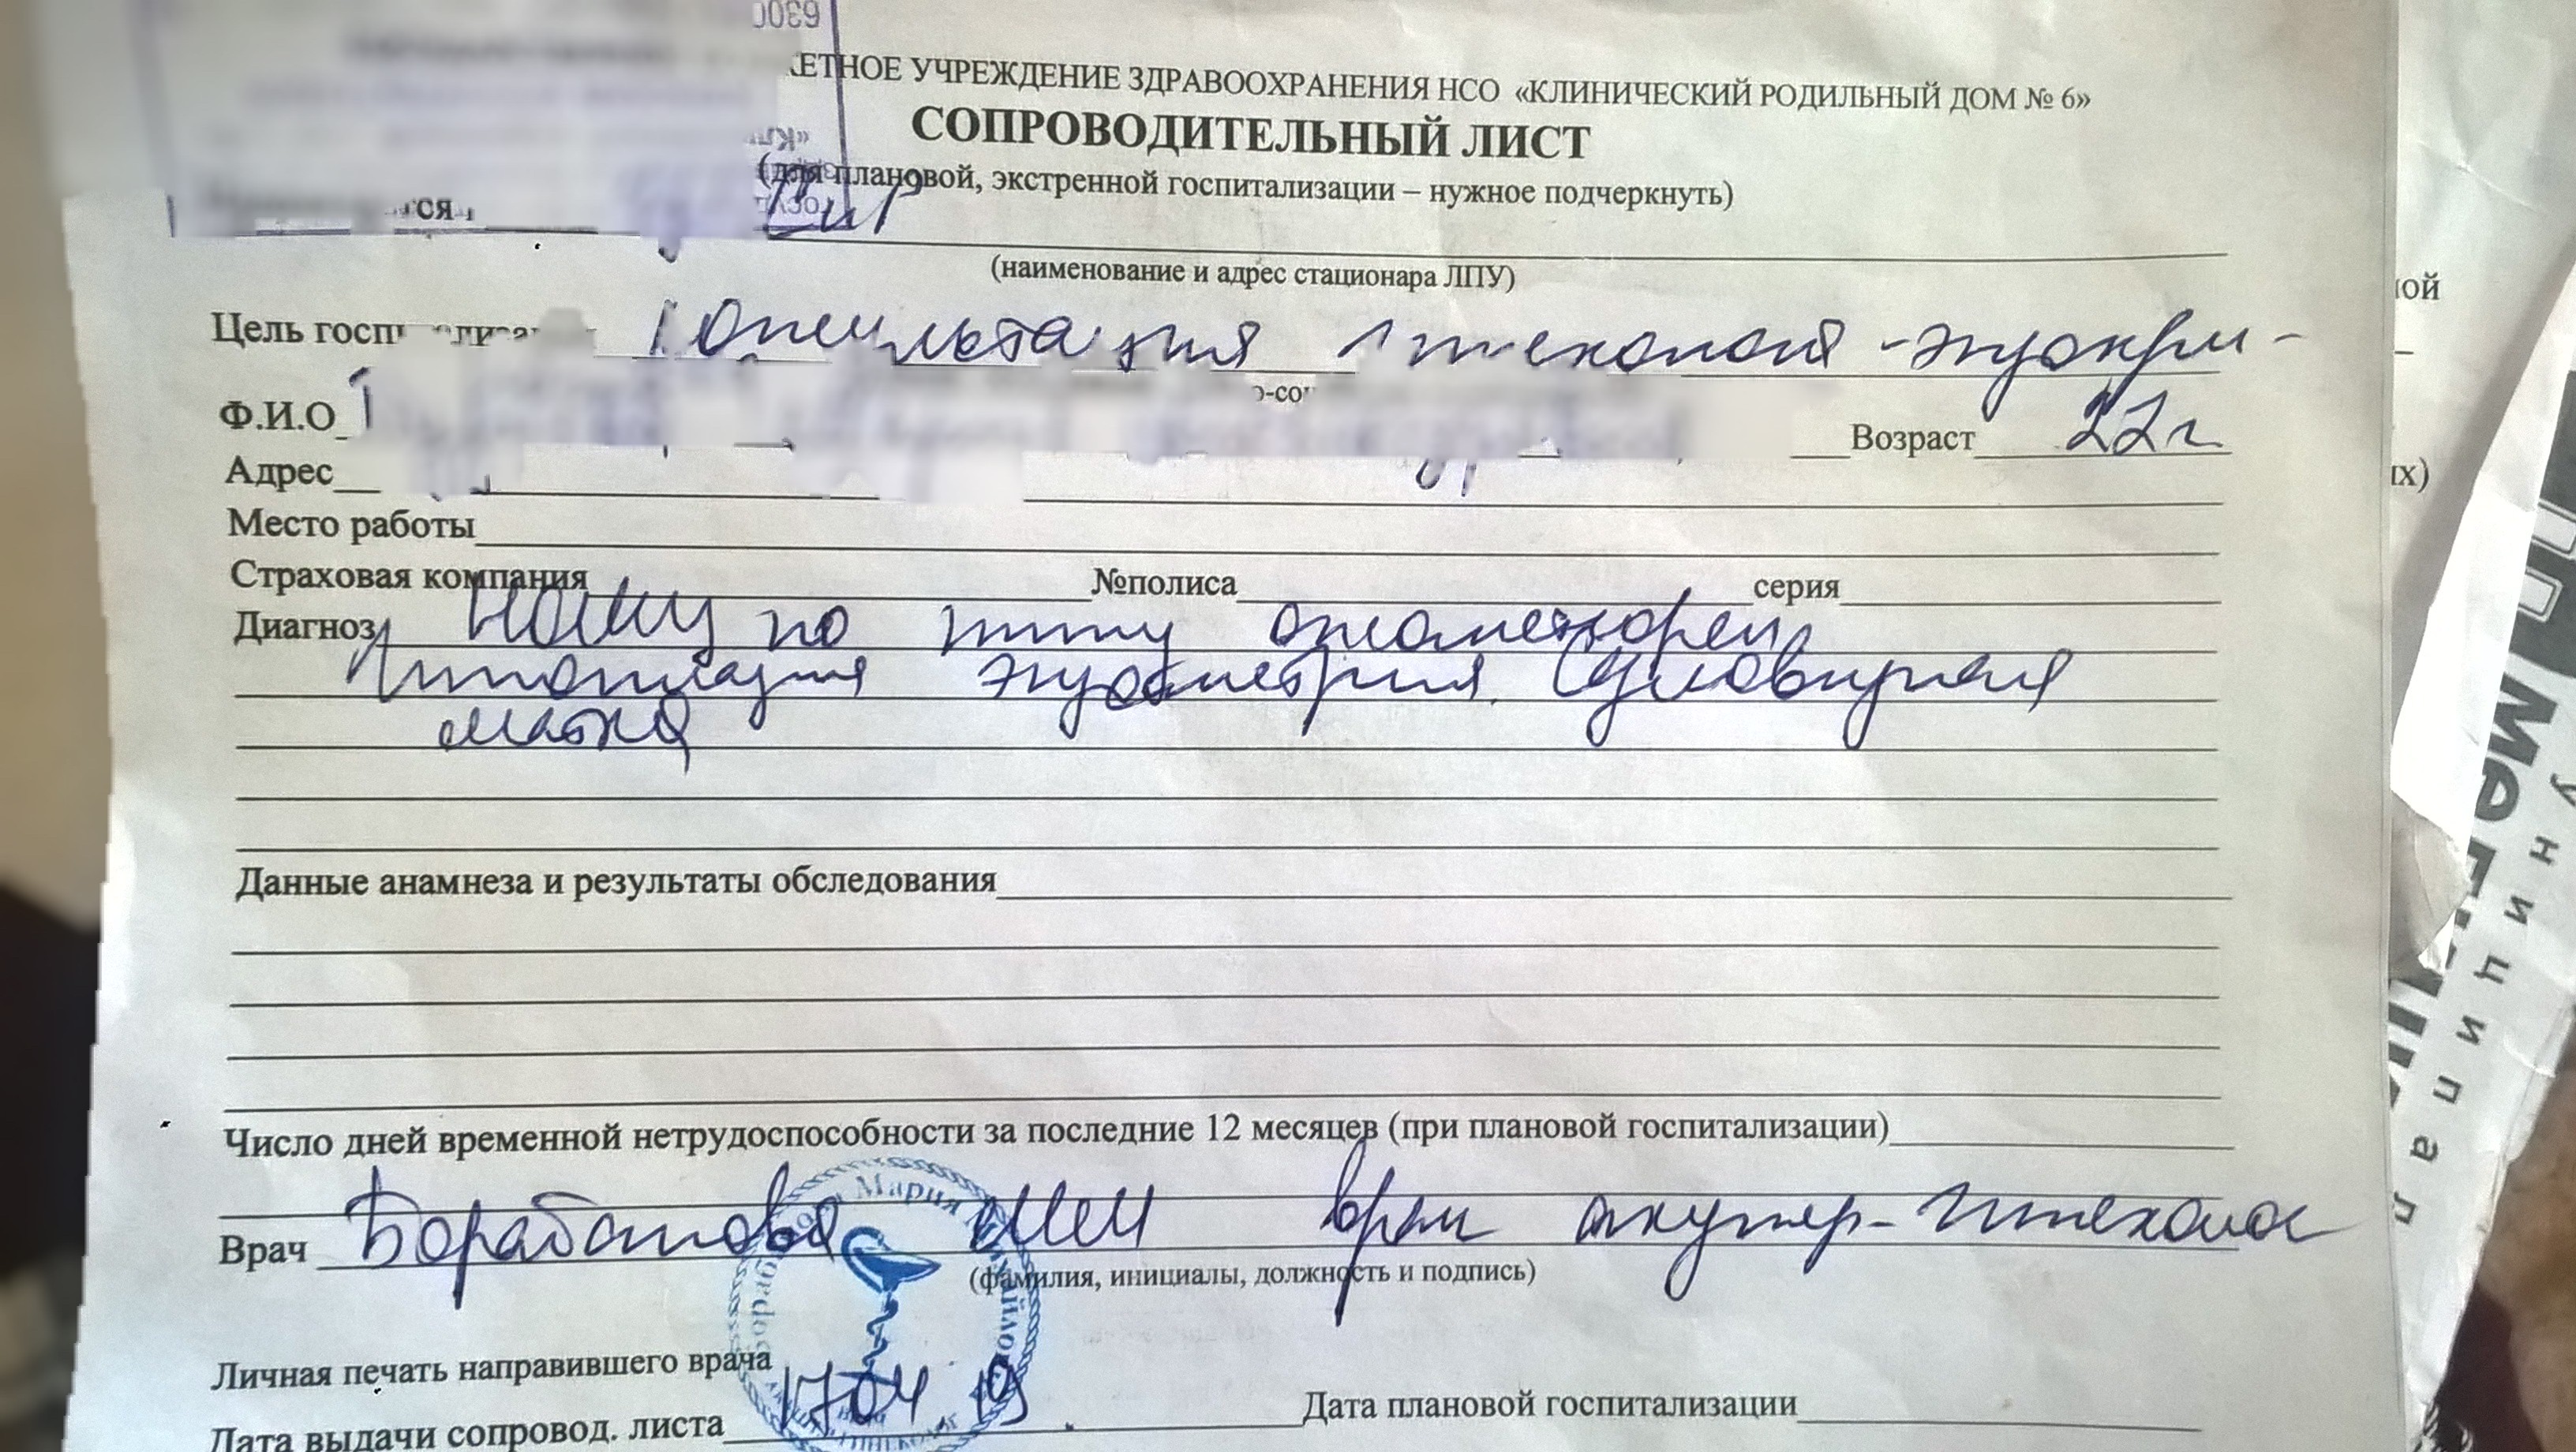 ЖЕТНОЕ УЧРЕЖДЕНИЕ ЗДРАВООХРАНЕНИЯ НСО «КЛИНИЧЕСКИЙ РОДИЛЬНЫЙ ДОМ № 6»
СОПРОВОДИТЕЛЬНЫЙ ЛИСТ
(для плановой, экстренной госпитализации – нужное подчеркнуть)
(наименование и адрес стационара ЛПУ)
Цель Консультация гинеколога -эндокри-
Ф.И.О Возраст 22г
Адрес
Место работы
Страховая компания №полиса серия
Диагноз НОМЦ по типу опсоменореи
Гипоплазия эндометрия. Седловидная
матка
Данные анамнеза и результаты обследования
Число дней временной нетрудоспособности за последние 12 месяцев (при плановой госпитализации)
Врач Барабанова врач акушер-гинеколог
(фамилия, инициалы, должность и подпись)
Мария
Личная печать направившего врача
Дата выдачи сопровод. листа 17.04.19 Дата плановой госпитализации